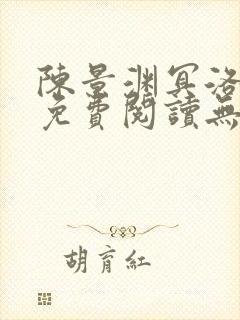 陳景淵冥洛
免費閱讀無
胡育紅